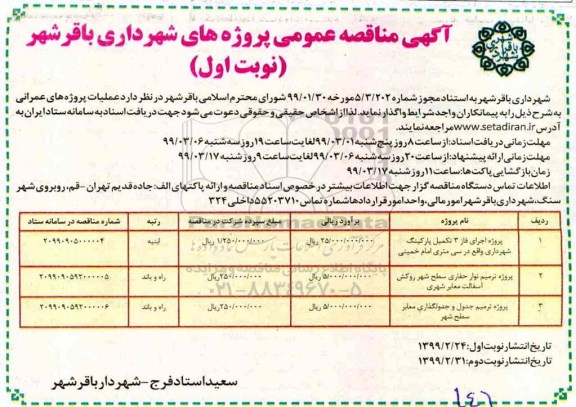 آگهی مناقصه عمومی پروژه های شهرداری باقرشهر
(نوبت اول)
شهرداری باقرشهر به استناد مجوز شماره ۵/۳/۲۰۲ مورخه ۹۹/۰۱/۳۰ شورای محترم اسلامی باقرشهر در نظر دارد عملیات پروژه های عمرانی
به شرح ذیل را به پیمانکاران واجد شرایط واگذار نماید. لذا از اشخاص حقیقی و حقوقی دعوت می شود جهت دریافت اسناد به سامانه ستاد ایران به
آدرس www.setadiran.ir مراجعه نمایند.
مهلت زمانی دریافت اسناد: از ساعت ۸ روز پنج شنبه ۹۹/۰۳/۰۱ لغایت ساعت ۱۹ روز سه شنبه ۹۹/۰۳/۰۶
مهلت زمانی ارائه پیشنهاد: از ساعت ۲۰ روز سه شنبه ۹۹/۰۳/۰۶ لغایت ساعت ۹ روز شنبه ۹۹/۰۳/۱۷
زمان بازگشایی پاکت ها: ساعت ۱۱ روز شنبه ۹۹/۰۳/۱۷
اطلاعات تماس دستگاه مناقصه گزار جهت اطلاعات بیشتر در خصوص اسناد مناقصه و ارائه پاکتهای الف: جاده قدیم تهران - قم، روبروی شهر
سنگ، شهرباقرشهر امور مالی، واحد امور قراردادها شماره تماس ۵۵۲۰۳۷۱۰ داخلی ۳۲۴
ردیف نام پروژه برآورد ریالی مبلغ سپرده شرکت در مناقصه رتبه شماره مناقصه در سامانه ستاد
۱ پروژه اجرای فاز ۳ تکمیل پارکینگ شهرداری واقع در سی متری امام خمینی ۲۵/۰۰۰/۰۰۰/۰۰۰ ریال ۱/۲۵۰/۰۰۰/۰۰۰ ریال ابنیه ۲۰۹۹۰۹۰۵۰۰۰۰۰۴
۲ پروژه ترمیم نوار حفاری سطح شهر روکش آسفالت معابر شهری ۵/۰۰۰/۰۰۰/۰۰۰ ریال ۲۵۰/۰۰۰/۰۰۰ ریال راه و باند ۲۰۹۹۰۹۰۵۹۲۰۰۰۰۰۵
۳ پروژه ترمیم جدول و جدولگذاری معابر سطح شهر ۵/۰۰۰/۰۰۰/۰۰۰ ریال ۲۵۰/۰۰۰/۰۰۰ ریال راه و باند ۲۰۹۹۰۹۰۵۹۲۰۰۰۰۰۶
ParsNamadData
۰۲۱-۸۸۳۴۹۶۷۰-۵
تاریخ انتشار نوبت اول: ۱۳۹۹/۲/۲۴
تاریخ انتشار نوبت دوم: ۱۳۹۹/۲/۳۱
سعید استاد فرج - شهردار باقرشهر